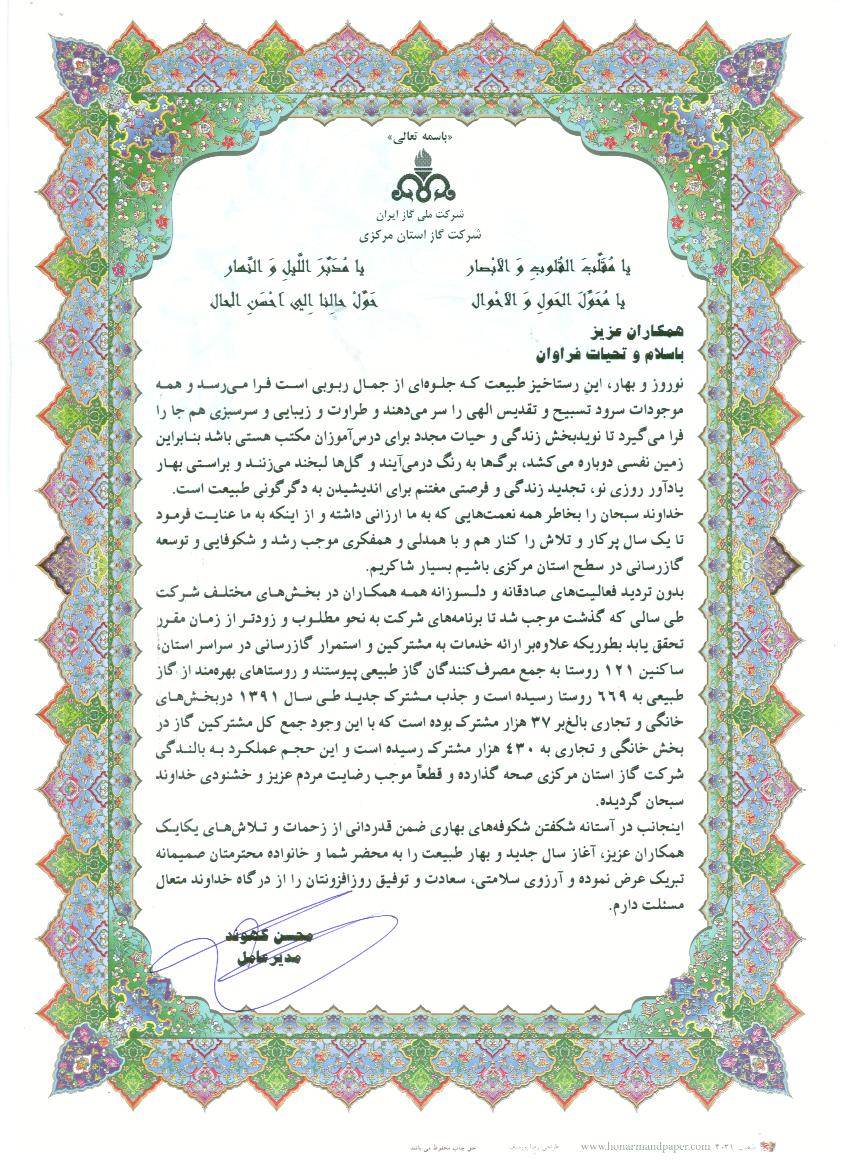 «باسمه تعالی»
شرکت ملی گاز ایران
شرکت گاز استان مرکزی
یا مُقَلِّبَ القُلوبِ وَ الاَبْصار یا مُدَبِّرَ اللَّیلِ وَ النَّهار
یا مُحَوِّلَ الحَولِ وَ الاَحْوال حَوِّلْ حالِنا اِلیٰ اَحْسَنِ الحال
همکاران عزیز
باسلام و تحیات فراوان
نوروز و بهار، این رستاخیز طبیعت که جلوه‌ای از جمال ربوبی است فرا می‌رسد و همه
موجودات سرود تسبیح و تقدیس الهی را سر می‌دهند و طراوت و زیبایی و سرسبزی هم جا را
فرا می‌گیرد تا نویدبخش زندگی و حیات مجدد برای درس‌آموزان مکتب هستی باشد بنابراین
زمین نفسی دوباره می‌کشد، برگ‌ها به رنگ درمی‌آیند و گل‌ها لبخند می‌زنند و براستی بهار
یادآور روزی نو، تجدید زندگی و فرصتی مغتنم برای اندیشیدن به دگرگونی طبیعت است.
خداوند سبحان را بخاطر همه نعمت‌هایی که به ما ارزانی داشته و از اینکه به ما عنایت فرمود
تا یک سال پرکار و تلاش را کنار هم و با همدلی و همفکری موجب رشد و شکوفایی و توسعه
گازرسانی در سطح استان مرکزی باشیم بسیار شاکریم.
بدون تردید فعالیت‌های صادقانه و دلسوزانه همه همکاران در بخش‌های مختلف شرکت
طی سالی که گذشت موجب شد تا برنامه‌های شرکت به نحو مطلوب و زودتر از زمان مقرر
تحقق یابد بطوریکه علاوه‌بر ارائه خدمات به مشترکین و استمرار گازرسانی در سراسر استان،
ساکنین ۱۲۱ روستا به جمع مصرف‌کنندگان گاز طبیعی پیوستند و روستاهای بهره‌مند از گاز
طبیعی به ۶۶۹ روستا رسیده است و جذب مشترک جدید طی سال ۱۳۹۱ دربخش‌های
خانگی و تجاری بالغ‌بر ۳۷ هزار مشترک بوده است که با این وجود جمع کل مشترکین گاز در
بخش خانگی و تجاری به ۴۳۰ هزار مشترک رسیده است و این حجم عملکرد به بالندگی
شرکت گاز استان مرکزی صحه گذارده و قطعاً موجب رضایت مردم عزیز و خشنودی خداوند
سبحان گردیده.
اینجانب در آستانه شکفتن شکوفه‌های بهاری ضمن قدردانی از زحمات و تلاش‌های یکایک
همکاران عزیز، آغاز سال جدید و بهار طبیعت را به محضر شما و خانواده محترمتان صمیمانه
تبریک عرض نموده و آرزوی سلامتی، سعادت و توفیق روزافزونتان را از درگاه خداوند متعال
مسئلت دارم.
محسن گهوند
مدیرعامل
۴۰۲۱ www.honarmandpaper.com حق چاپ محفوظ می باشد